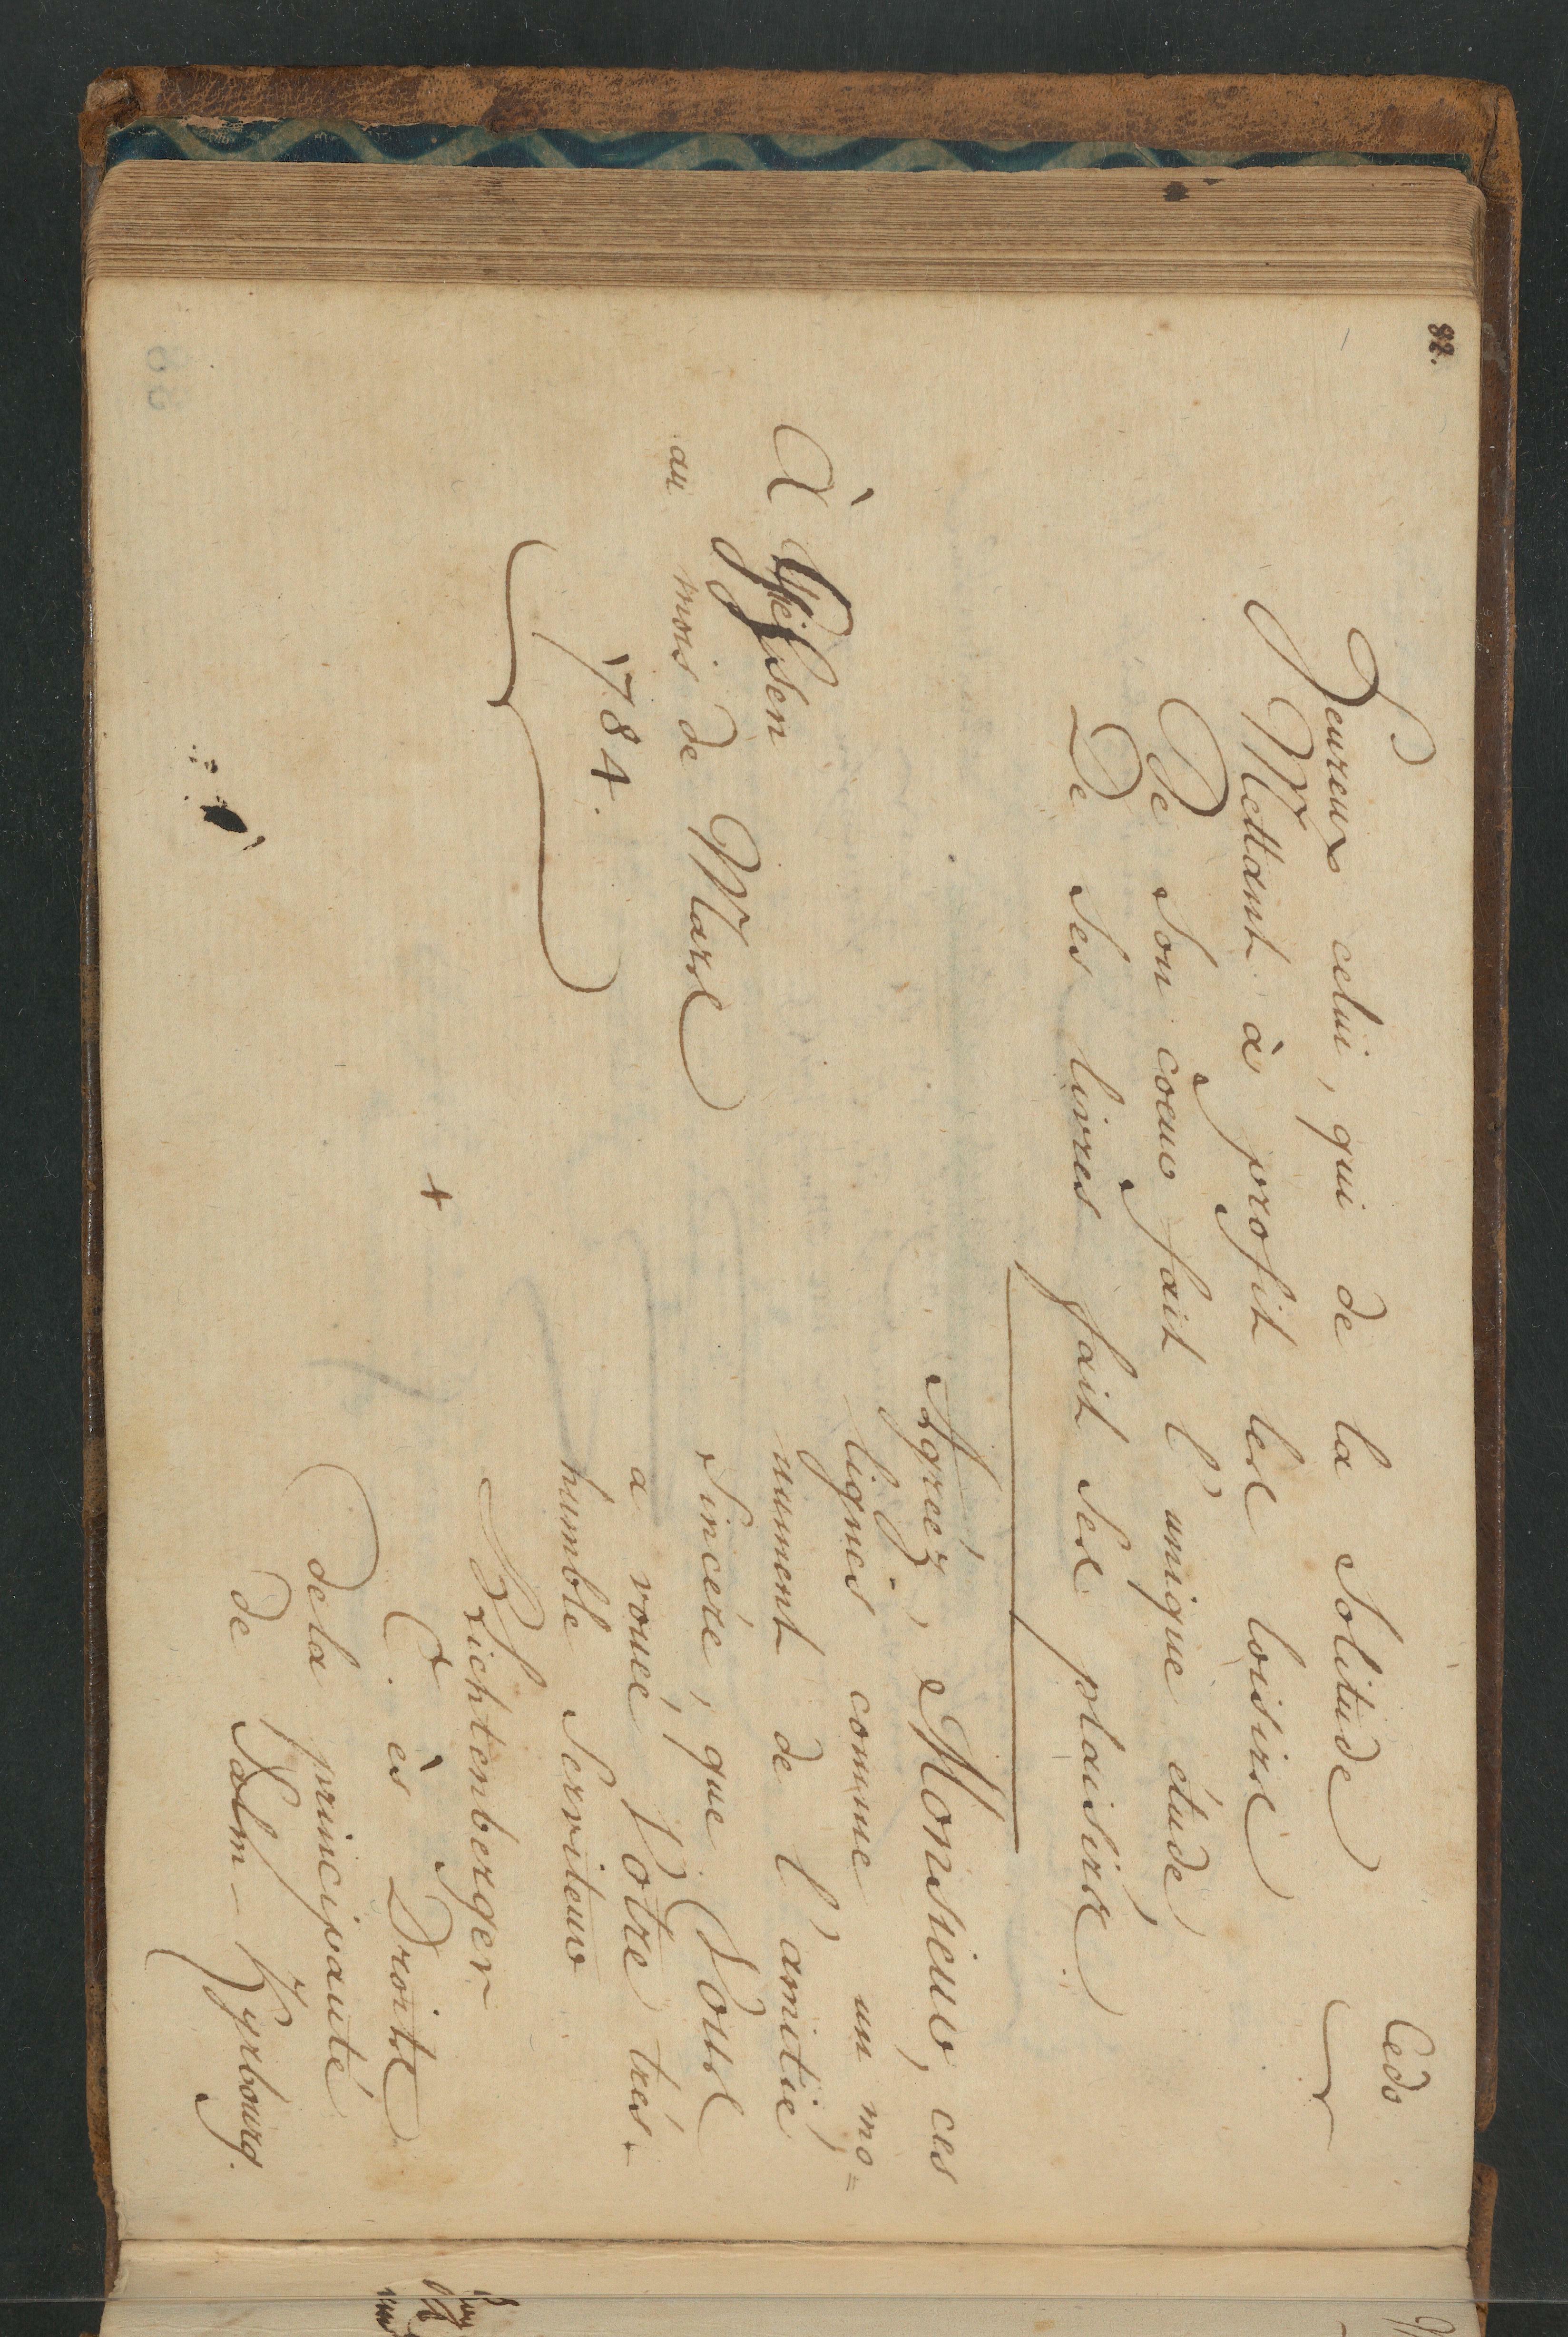 82.
Cedo
Heureux celui, qui de la Solitude
Mettant à profit les loisirs
De Son coeur fait l'unique étude,
De Ses livres fait Ses plaisirs.
Agreéz, Monsieur, ces
lignes comme un mo=
nument de l'amitié,
Sincére, que Vous
a voueé Votre trés-
humble Serviteur
Lichtenberger
C. ès Droits
dela principauté
de Salm-Kyrbourg.
À
au mois de Mars
1784.